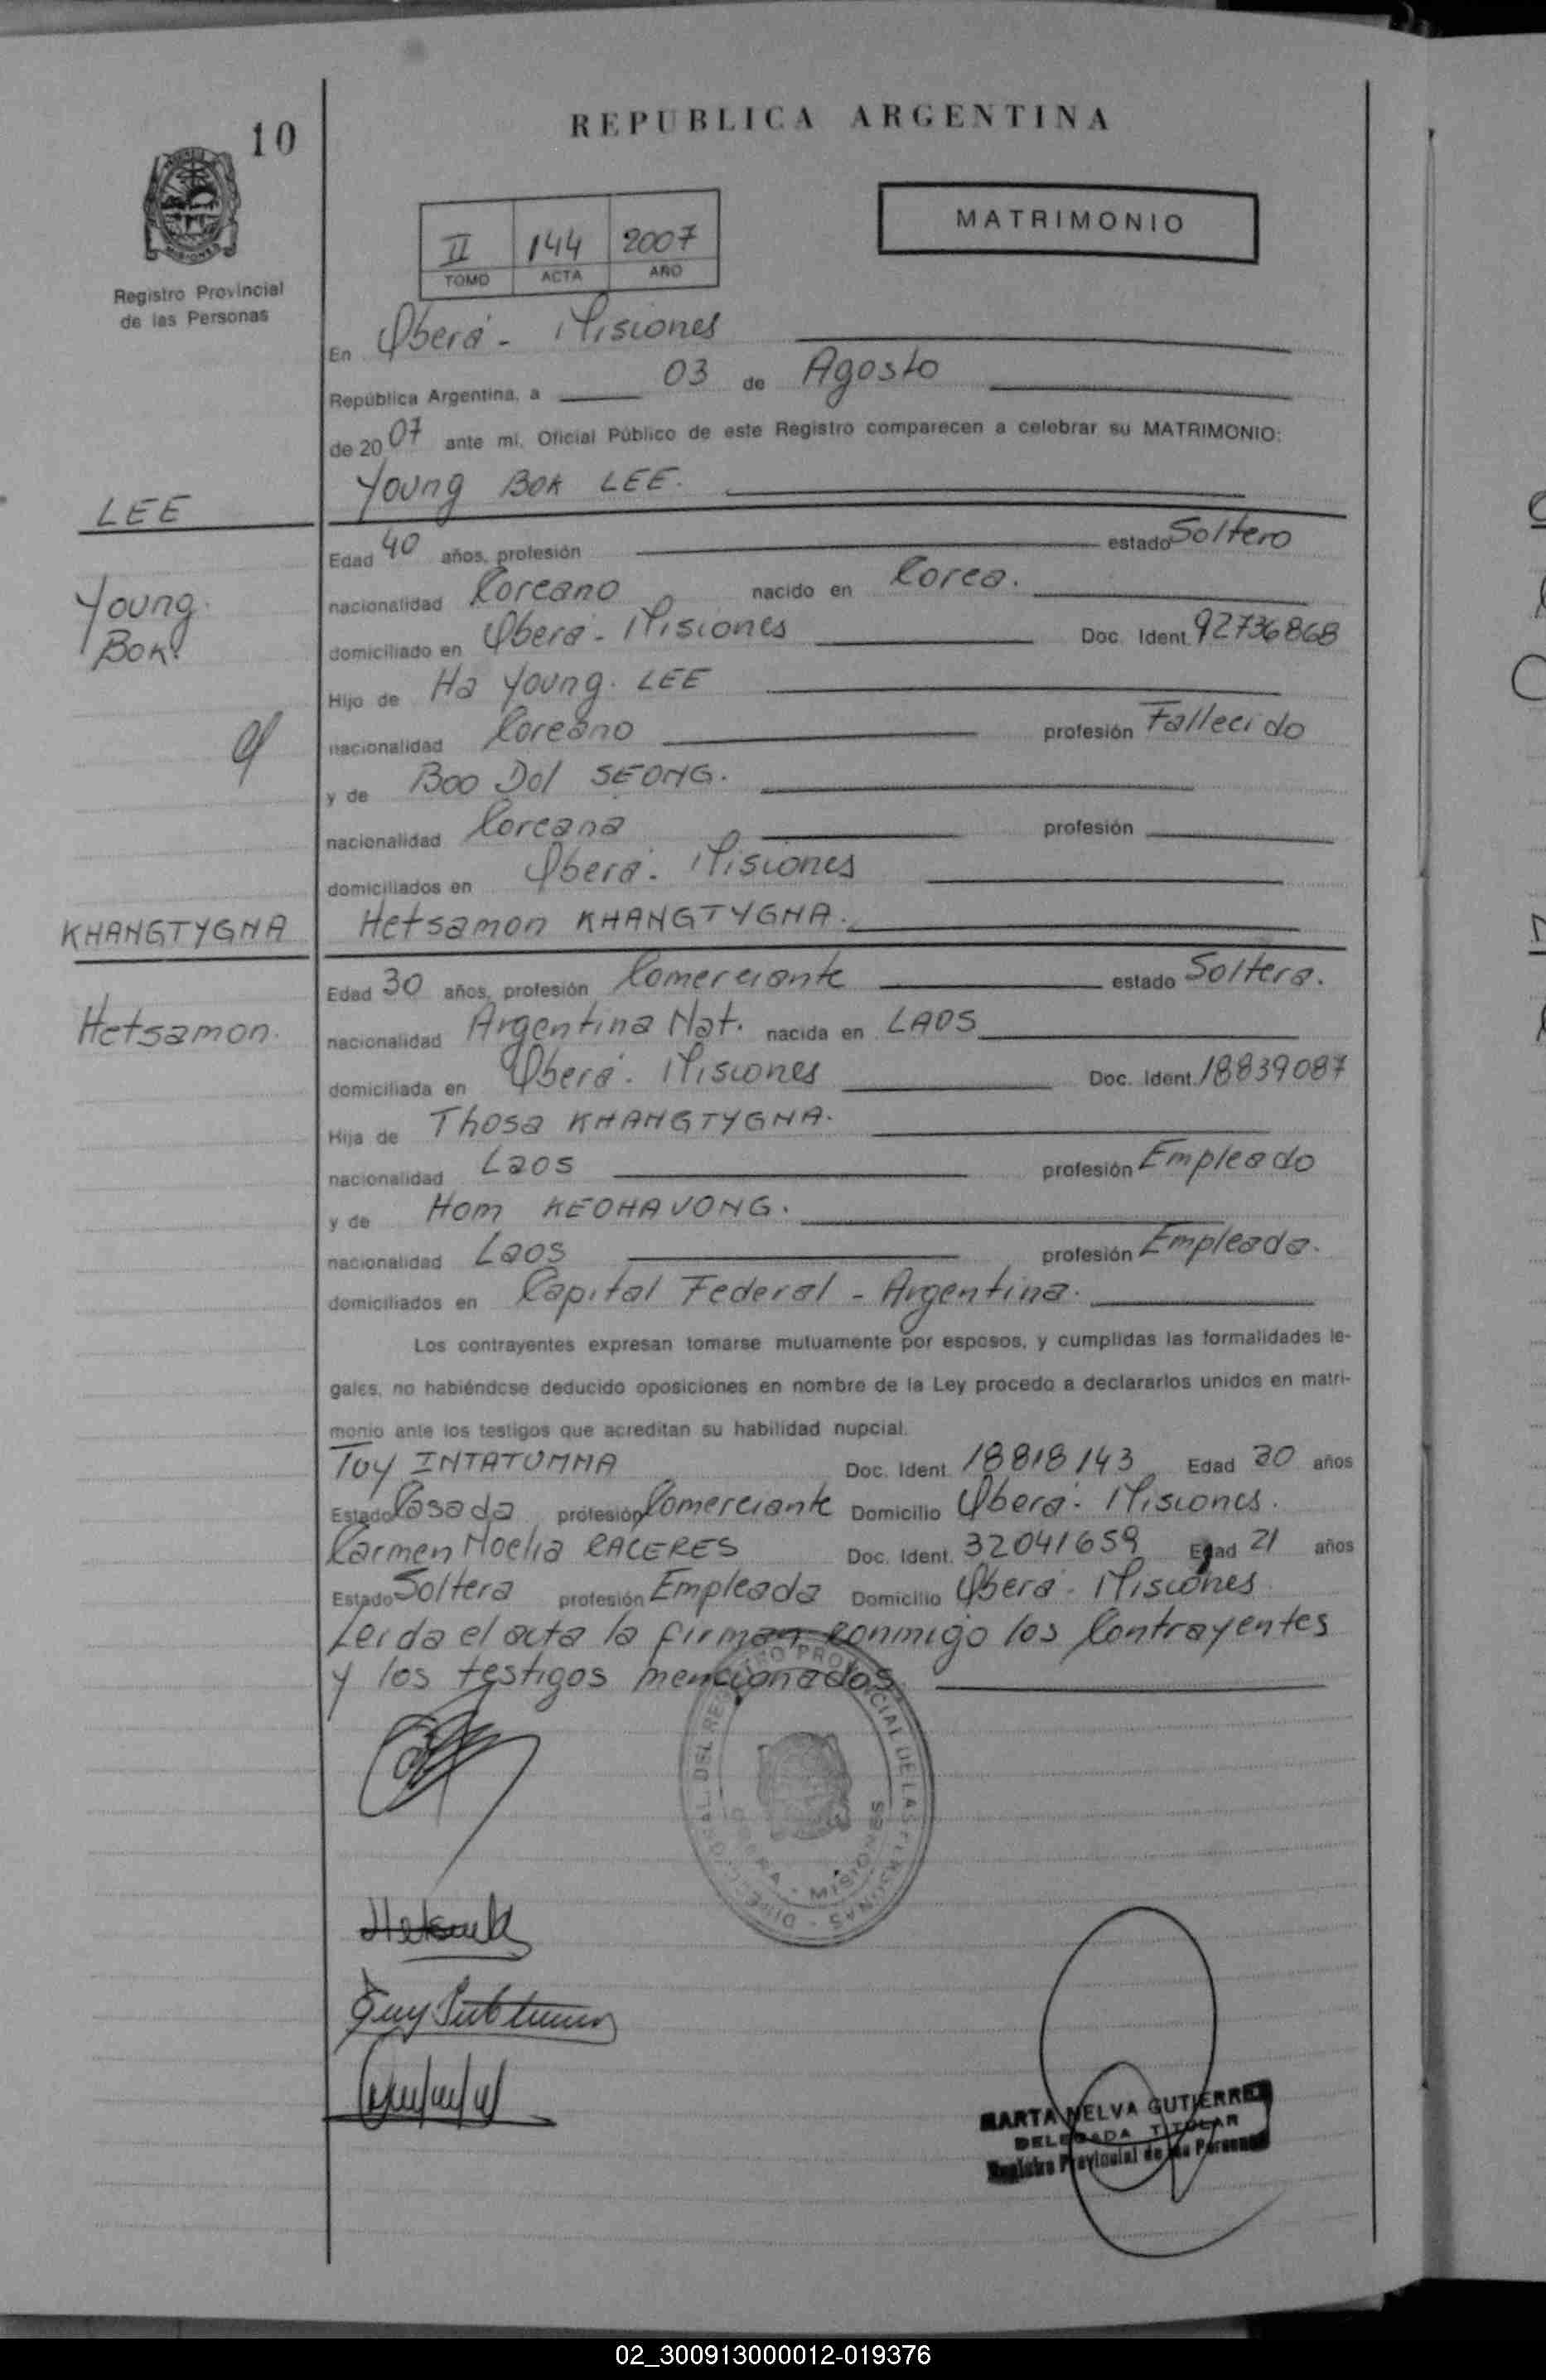 10
REPUBLICA ARGENTINA
MISIONES
Registro Provincial
de las Personas
II 144 2007
TOMO ACTA AÑO
MATRIMONIO
En Oberá - Misiones
República Argentina, a 03 de Agosto
de 20 07 ante mi, Oficial Público de este Registro comparecen a celebrar su MATRIMONIO:
LEE
Young
Bok
Young Bok LEE.
Edad 40 años, profesión estado Soltero
nacionalidad Coreano nacido en Corea.
domiciliado en Oberá - Misiones Doc. Ident. 92736868
Hijo de Ha Young. LEE
nacionalidad Coreano profesión Fallecido
y de Boo Dol SEONG.
nacionalidad Coreana profesión
domiciliados en Oberá - Misiones
KHANGTYGNA
Hetsamon.
Hetsamon KHANGTYGNA.
Edad 30 años, profesión Comerciante estado Soltera.
nacionalidad Argentina Nat. nacida en LAOS
domiciliada en Oberá - Misiones Doc. Ident. 18839087
Hija de Thosa KHANGTYGNA.
nacionalidad Laos profesión Empleado
y de Hom KEOHAVONG.
nacionalidad Laos profesión Empleada.
domiciliados en Capital Federal - Argentina.
Los contrayentes expresan tomarse mutuamente por esposos, y cumplidas las formalidades le-
gales, no habiéndose deducido oposiciones en nombre de la Ley procedo a declararlos unidos en matri-
monio ante los testigos que acreditan su habilidad nupcial.
Tuy INTATUMNA Doc. Ident. 18818143 Edad 30 años
Estado Casada profesión Comerciante Domicilio Oberá - Misiones.
Carmen Noelia CACERES Doc. Ident. 32041659 Edad 21 años
Estado Soltera profesión Empleada Domicilio Oberá - Misiones
Leida el acta la firman conmigo los Contrayentes
y los testigos mencionados
REGISTRO PROVINCIAL DE LAS PERSONAS
OBERA - MISIONES
MARTA NELVA GUTIERREZ
DELEGADA TITULAR
Registro Provincial de las Personas
02_300913000012-019376